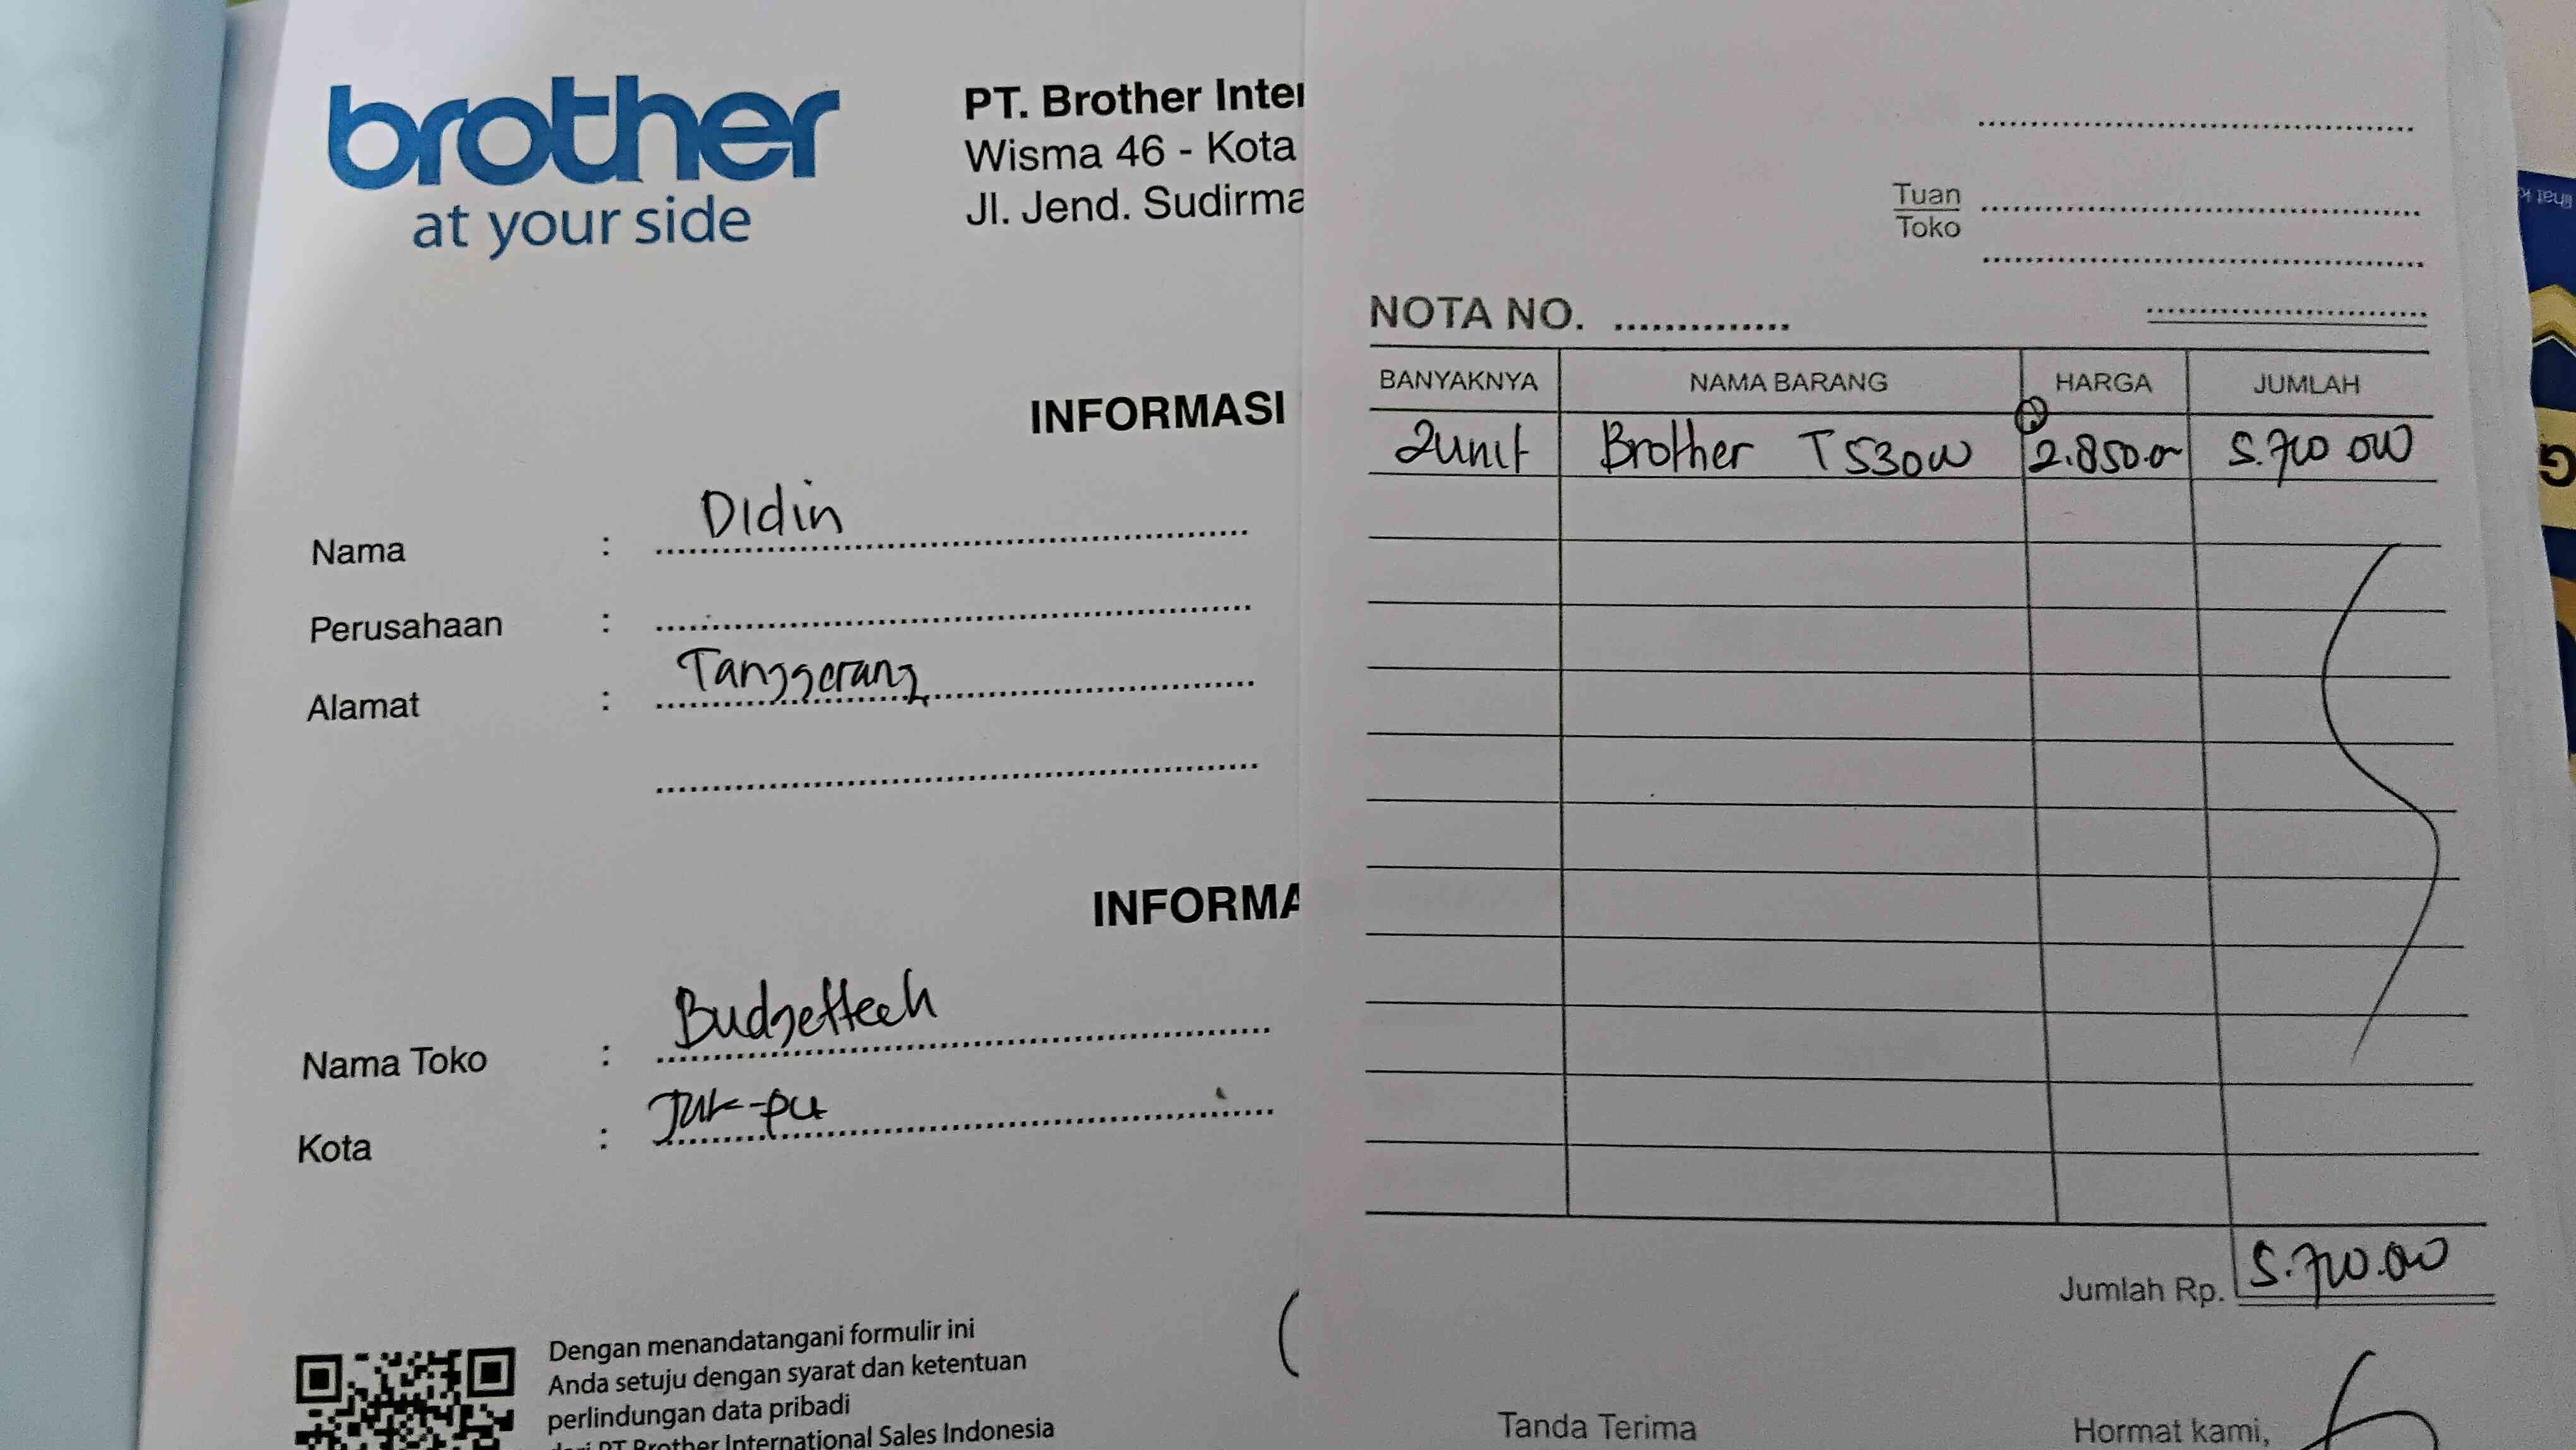 brother
at your side
PT. Brother Inter
Wisma 46 - Kota
Jl. Jend. Sudirma
INFORMASI
Nama : Didin
Perusahaan :
Alamat : Tanggerang
INFORMA
Nama Toko : Budgettech
Kota : Jak-pu
Dengan menandatangani formulir ini
Anda setuju dengan syarat dan ketentuan
perlindungan data pribadi
dari PT Brother International Sales Indonesia
Tuan
Toko
NOTA NO.
BANYAKNYA NAMA BARANG HARGA JUMLAH
2unit Brother T530W 2.850.00 5.700 000
Jumlah Rp. 5.700.00
Tanda Terima Hormat kami,
lihat k
G